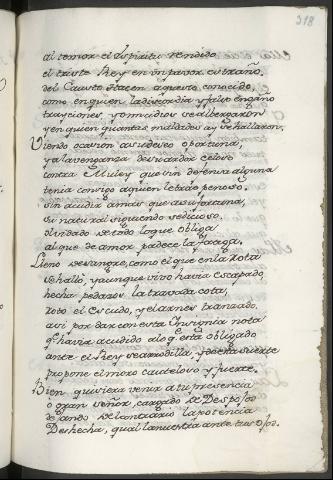 318
al temor el espiritu rendido
el triste Rey en un pavor estraño,
del Causto Hacen aqueste conocido,
como en quien la discordia y falso engaño
trayciones y omicidios se albergaron
y en quien quantas maldades ay se hallaron,
Viendo ocasion a su deseo oportuna,
y a la venganza de su ardor celoso
contra Muley que sin defensa alguna
tenia consigo a quien le trae penoso.
sin acudir a mas que a su fortuna,
su natural siguiendo sedicioso,
olvidado de todo lo que obliga
al que de amor padece la fatiga.
Lleno de sangre, como el que en la Rota
se halló, y aunque vivo havia escapado,
hecha pedazos la travada cota,
Roto el escudo, y el arnes tranzado,
asi por dar con esta Insignia nota
q̃ havia acudido a lo q̃ está obligado
ante el Rey se arrodilla, y desta suerte
propone el moro cauteloso y fuerte.
Bien quisiera venir a tu presencia
o gran señor, cargado de Despojos
dejando del contrario la potencia
Deshecha, qual la nuestra ante tus ojos.